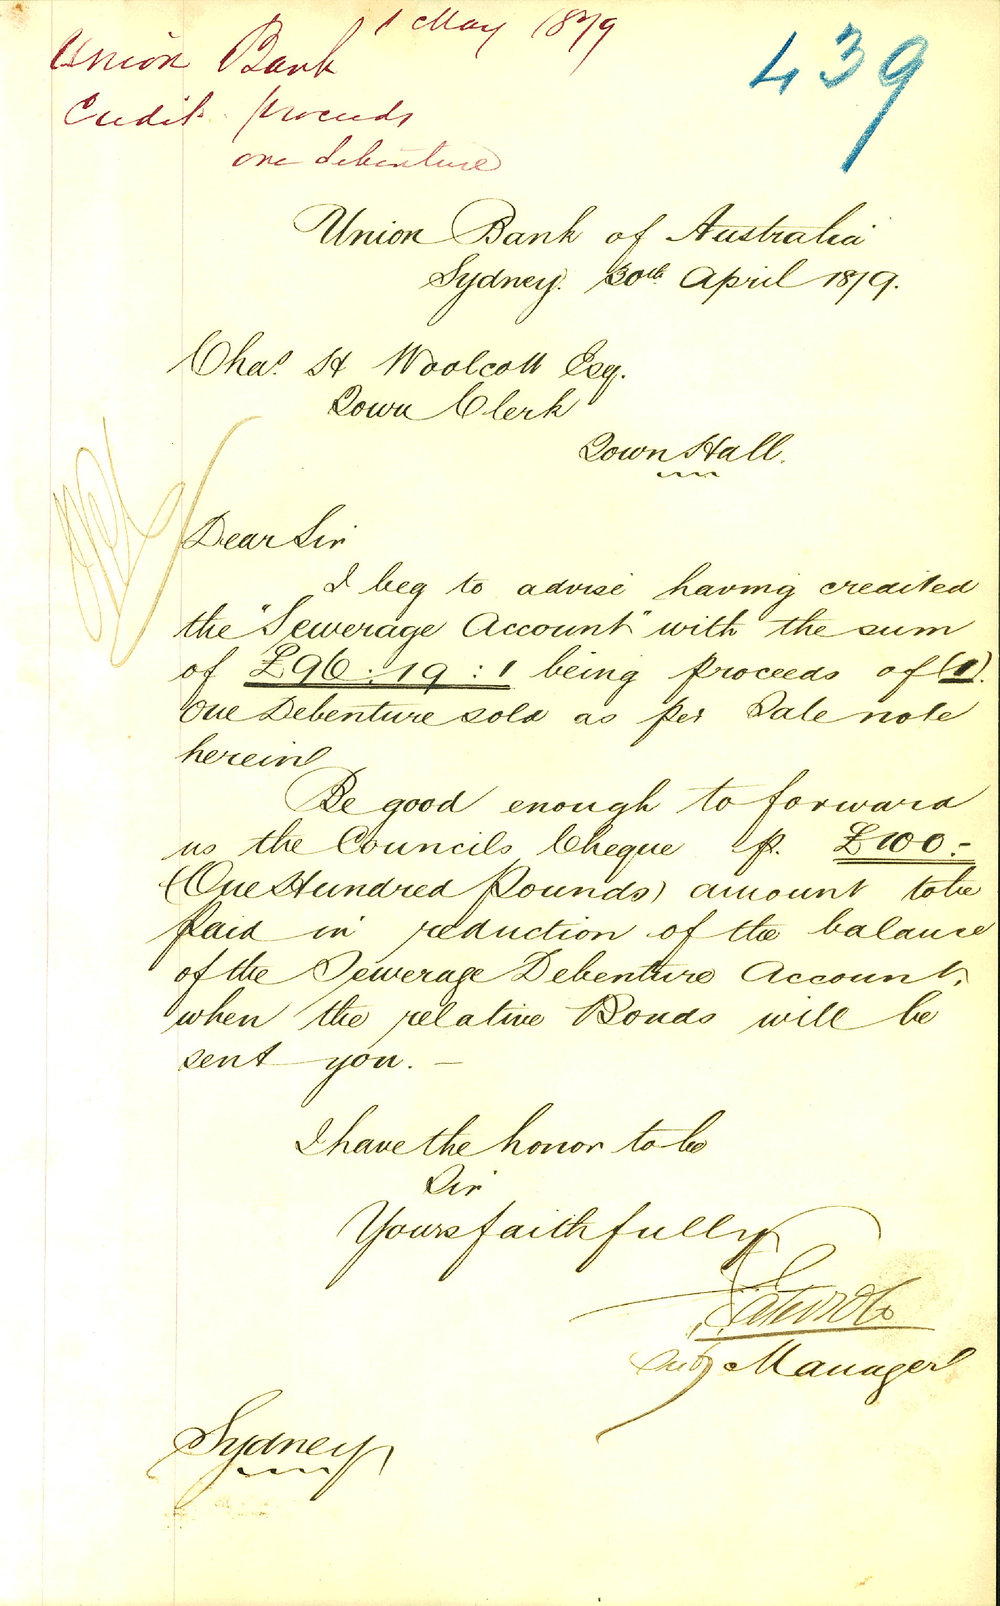 1 May 1879
Union Bank
Credit proceeds
one debenture
439
Union Bank of Australia
Sydney. 30th April 1879.
Chas. H Woolcott Esq.
Town Clerk
Town Hall.
Dear Sir
I beg to advise having credited
the "Sewerage Account" with the sum
of £96:19:1 being proceeds of (1).
One Debenture sold as per Sale note
herein
Be good enough to forward
us the Councils Cheque p. £100:-
(One Hundred Pounds) amount to be
paid in reduction of the balance
of the Sewerage Debenture Account,
when the relative Bonds will be
sent you. —
I have the honor to be
Sir
Yours faithfully
Manager
Sydney